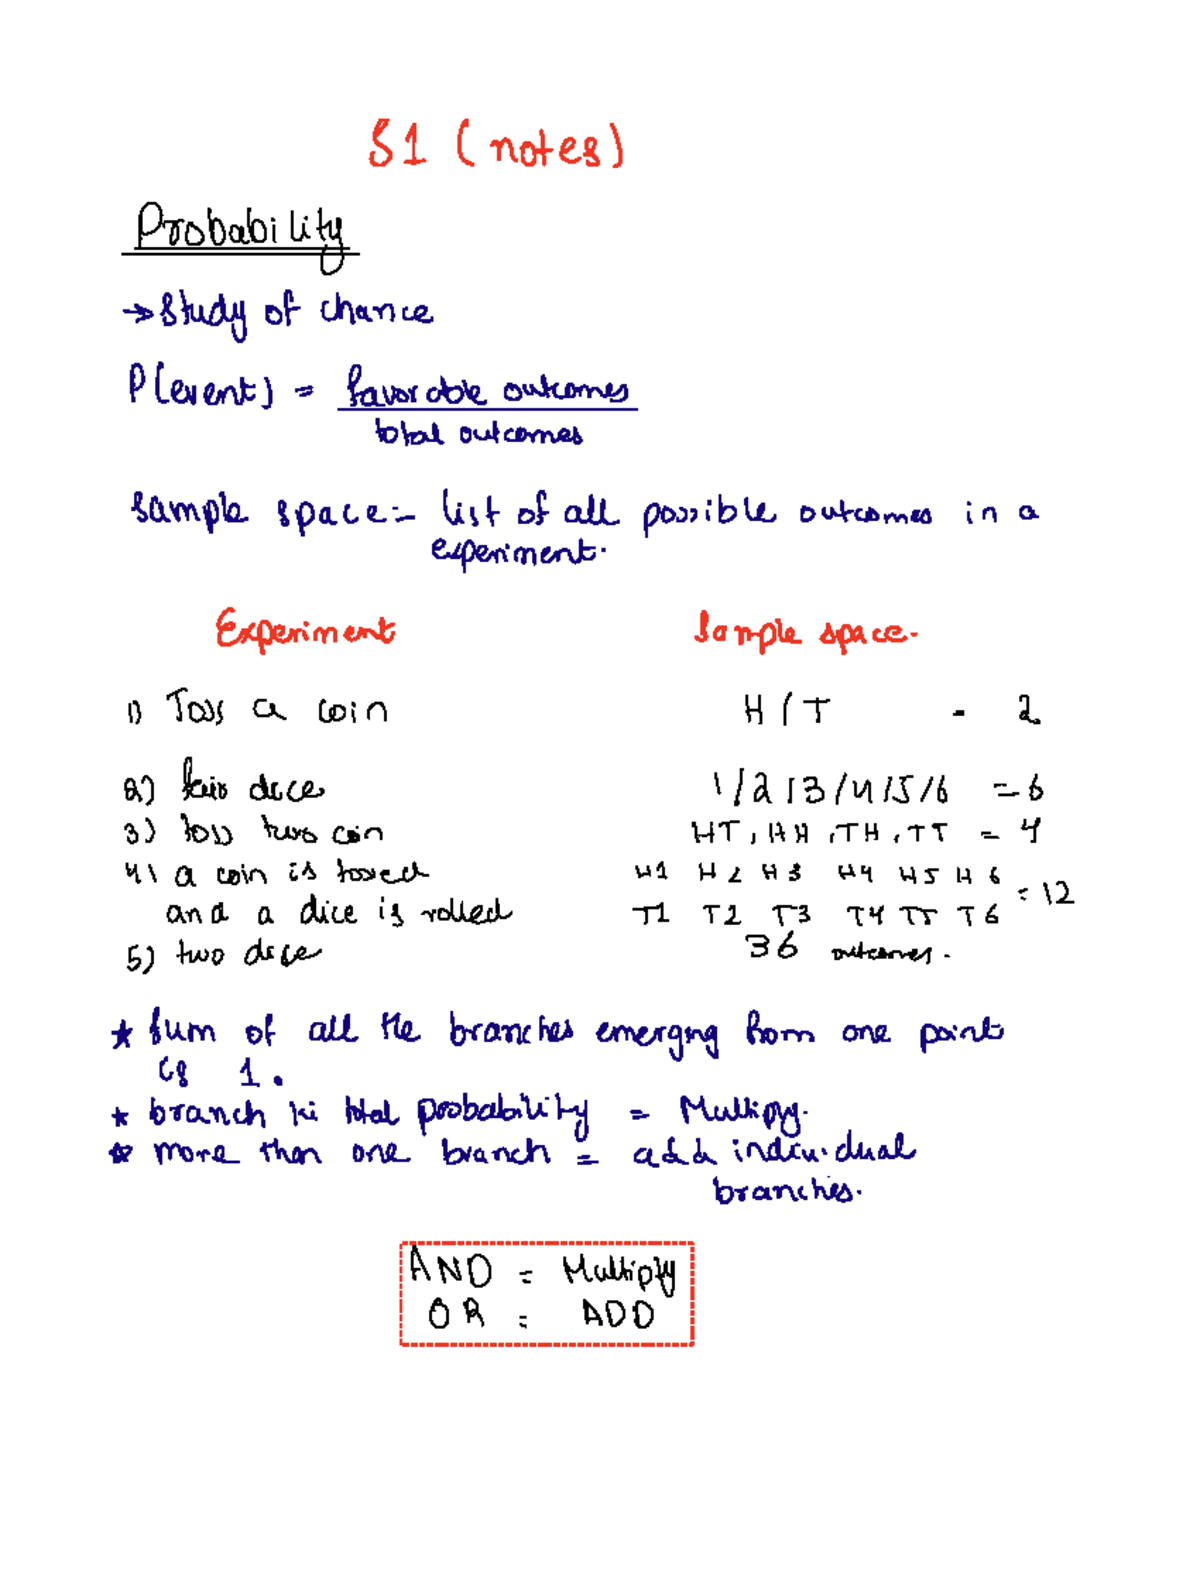 S1 (notes)
Probability
→ Study of chance
P(event) = favorable outcomes
total outcomes
Sample space:- list of all possible outcomes in a
experiment.
Experiment Sample space.
1) Toss a coin H/T - 2
2) fair dice 1/2/3/4/5/6 = 6
3) toss two coin HT, HH, TH, TT = 4
4) a coin is tossed H1 H2 H3 H4 H5 H6
and a dice is rolled T1 T2 T3 T4 T5 T6 = 12
5) two dice 36 outcomes.
★ Sum of all the branches emerging from one point
is 1.
★ branch ki total probability = Multiply.
★ more than one branch = add individual
branches.
AND = Multiply
OR = ADD